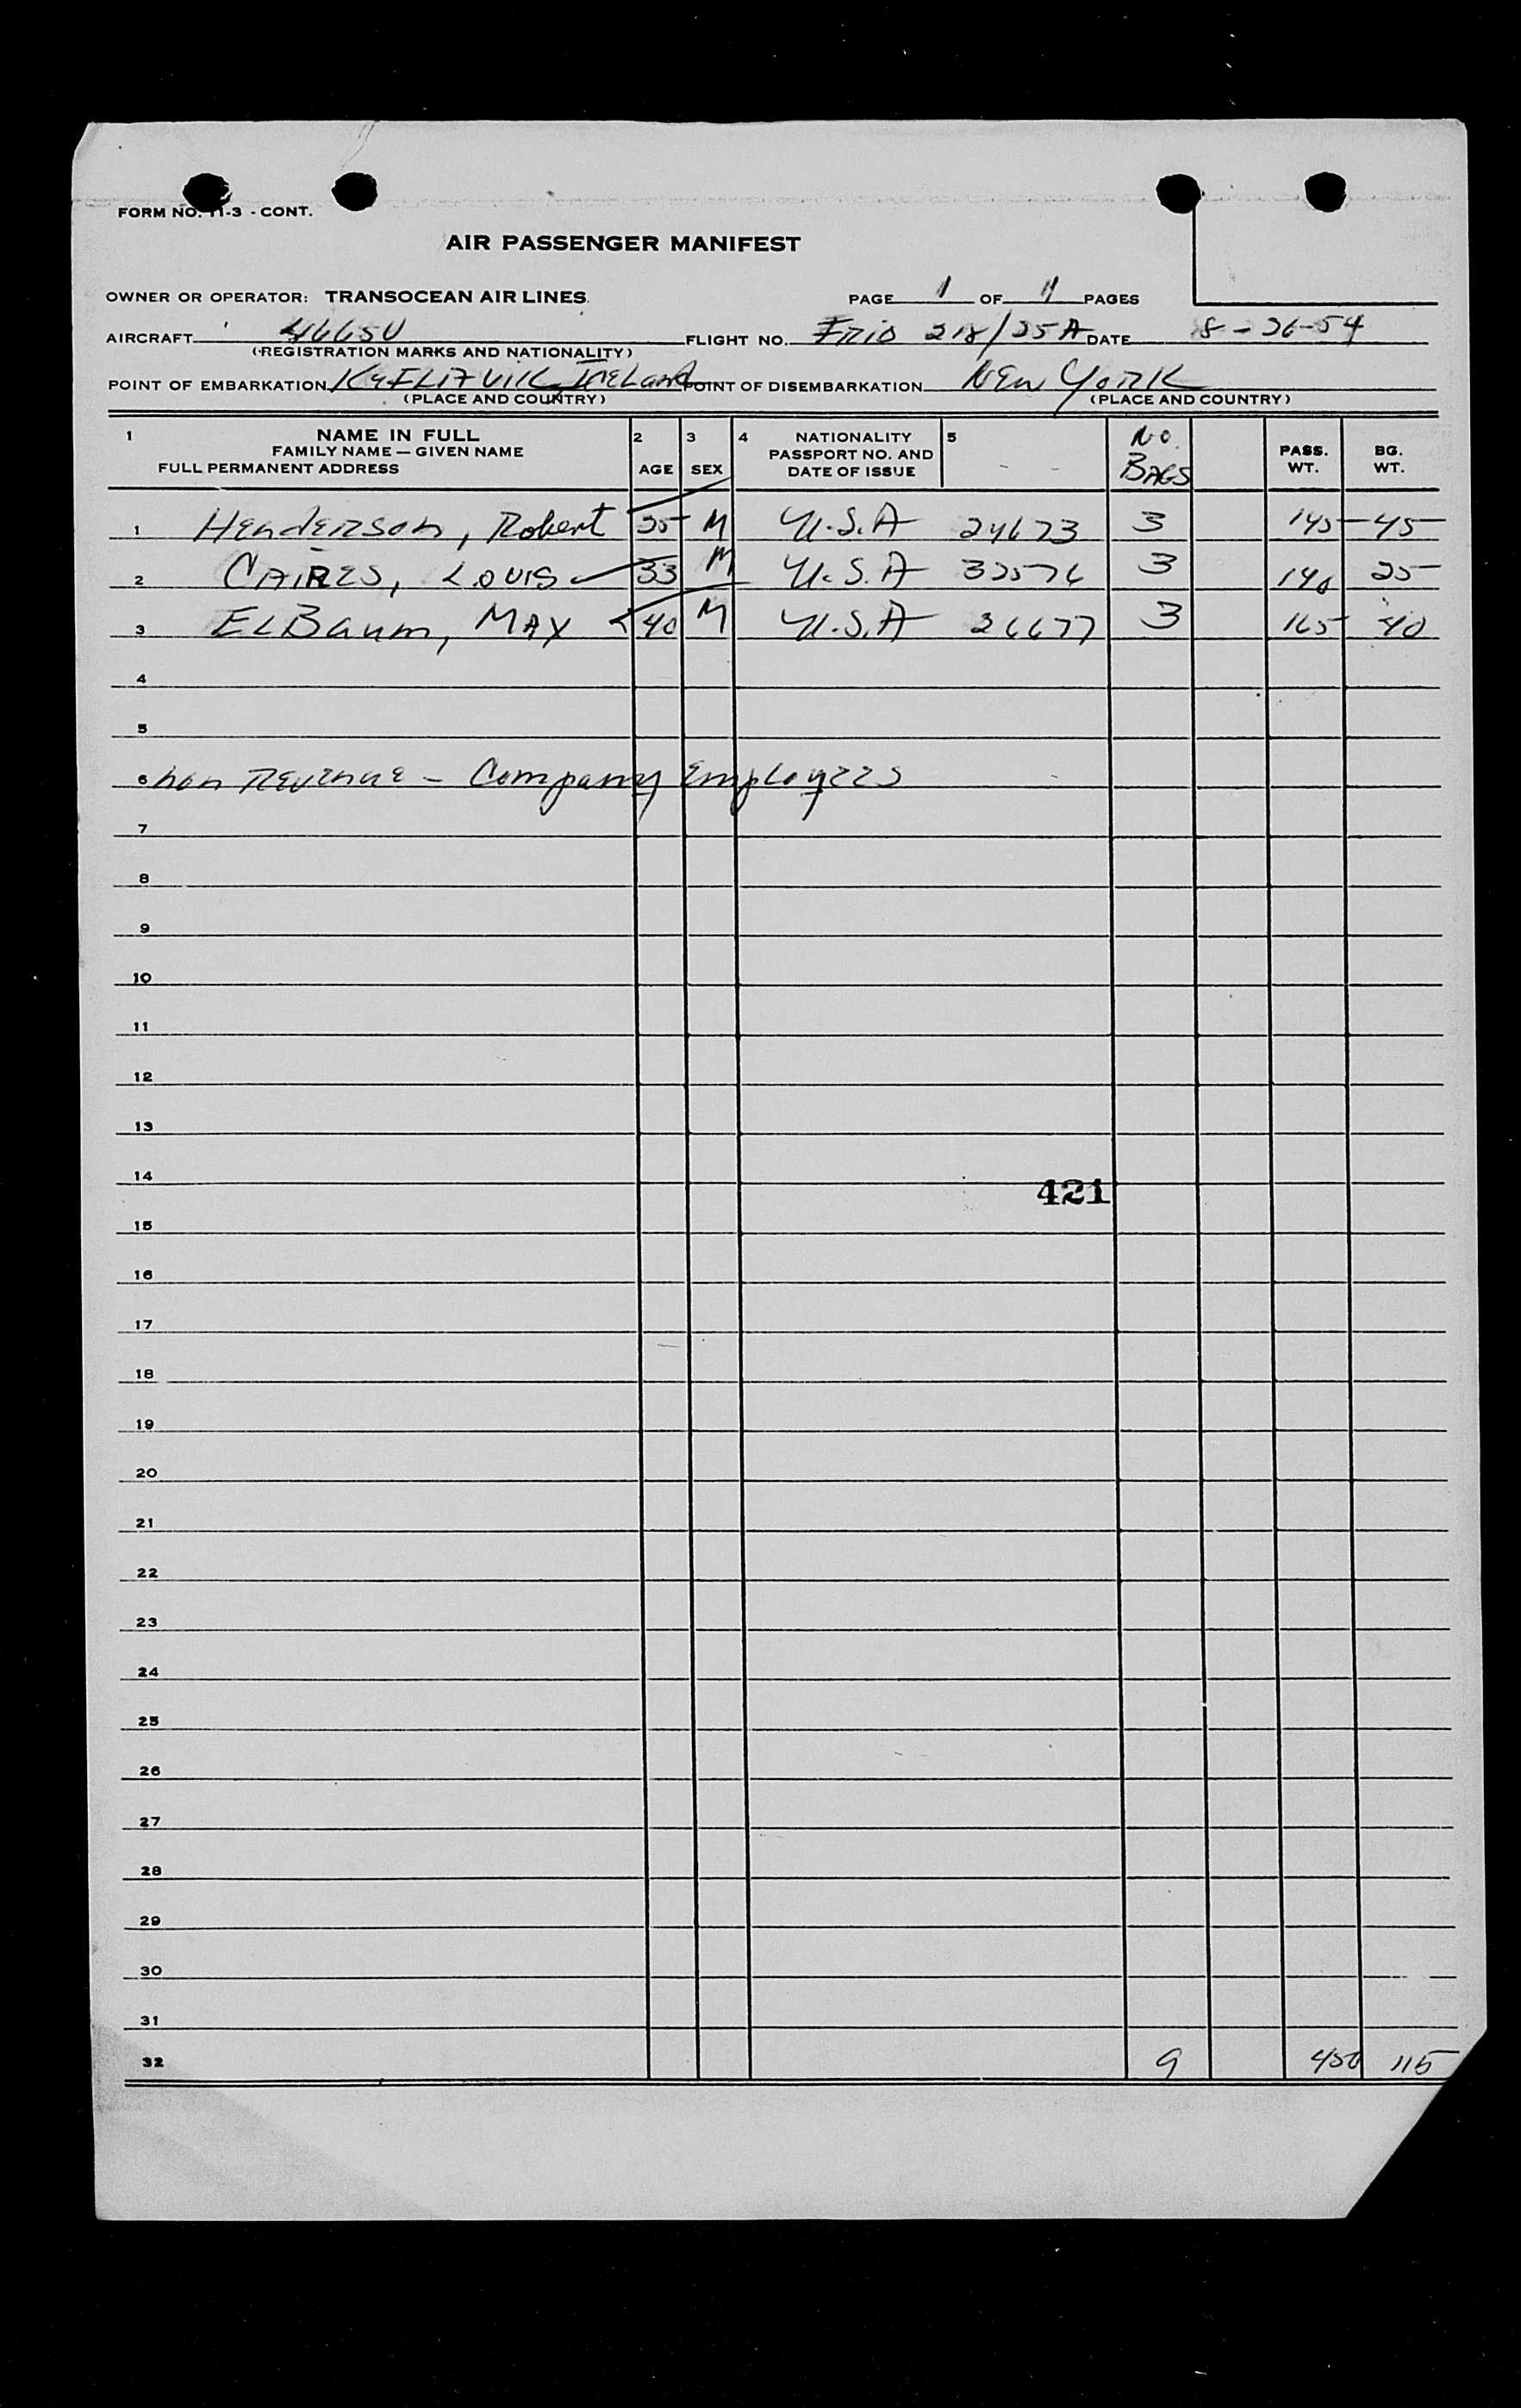 FORM NO. 11-3 - CONT.
AIR PASSENGER MANIFEST
OWNER OR OPERATOR: TRANSOCEAN AIR LINES. PAGE 1 OF 1 PAGES
AIRCRAFT 4665U FLIGHT NO. 218/25A DATE 8-26-54
(REGISTRATION MARKS AND NATIONALITY)
POINT OF EMBARKATION POINT OF DISEMBARKATION NEW YORK
(PLACE AND COUNTRY) (PLACE AND COUNTRY)
1 NAME IN FULL 2 3 4 NATIONALITY 5 No.
FAMILY NAME — GIVEN NAME PASSPORT NO. AND PASS. BG.
FULL PERMANENT ADDRESS AGE SEX DATE OF ISSUE BAGS WT. WT.
1 Henderson, Robert 25 M U.S.A 24673 3 145 45
2 CAIRES, LOUIS 33 M U.S.A 32576 3 140 25
3 ELBaum, MAX 40 M U.S.A 26677 3 165 40
4
5
6 non Revenue - Company Employees
7
8
9
10
11
12
13
14
421
15
16
17
18
19
20
21
22
23
24
25
26
27
28
29
30
31
32 9 450 115